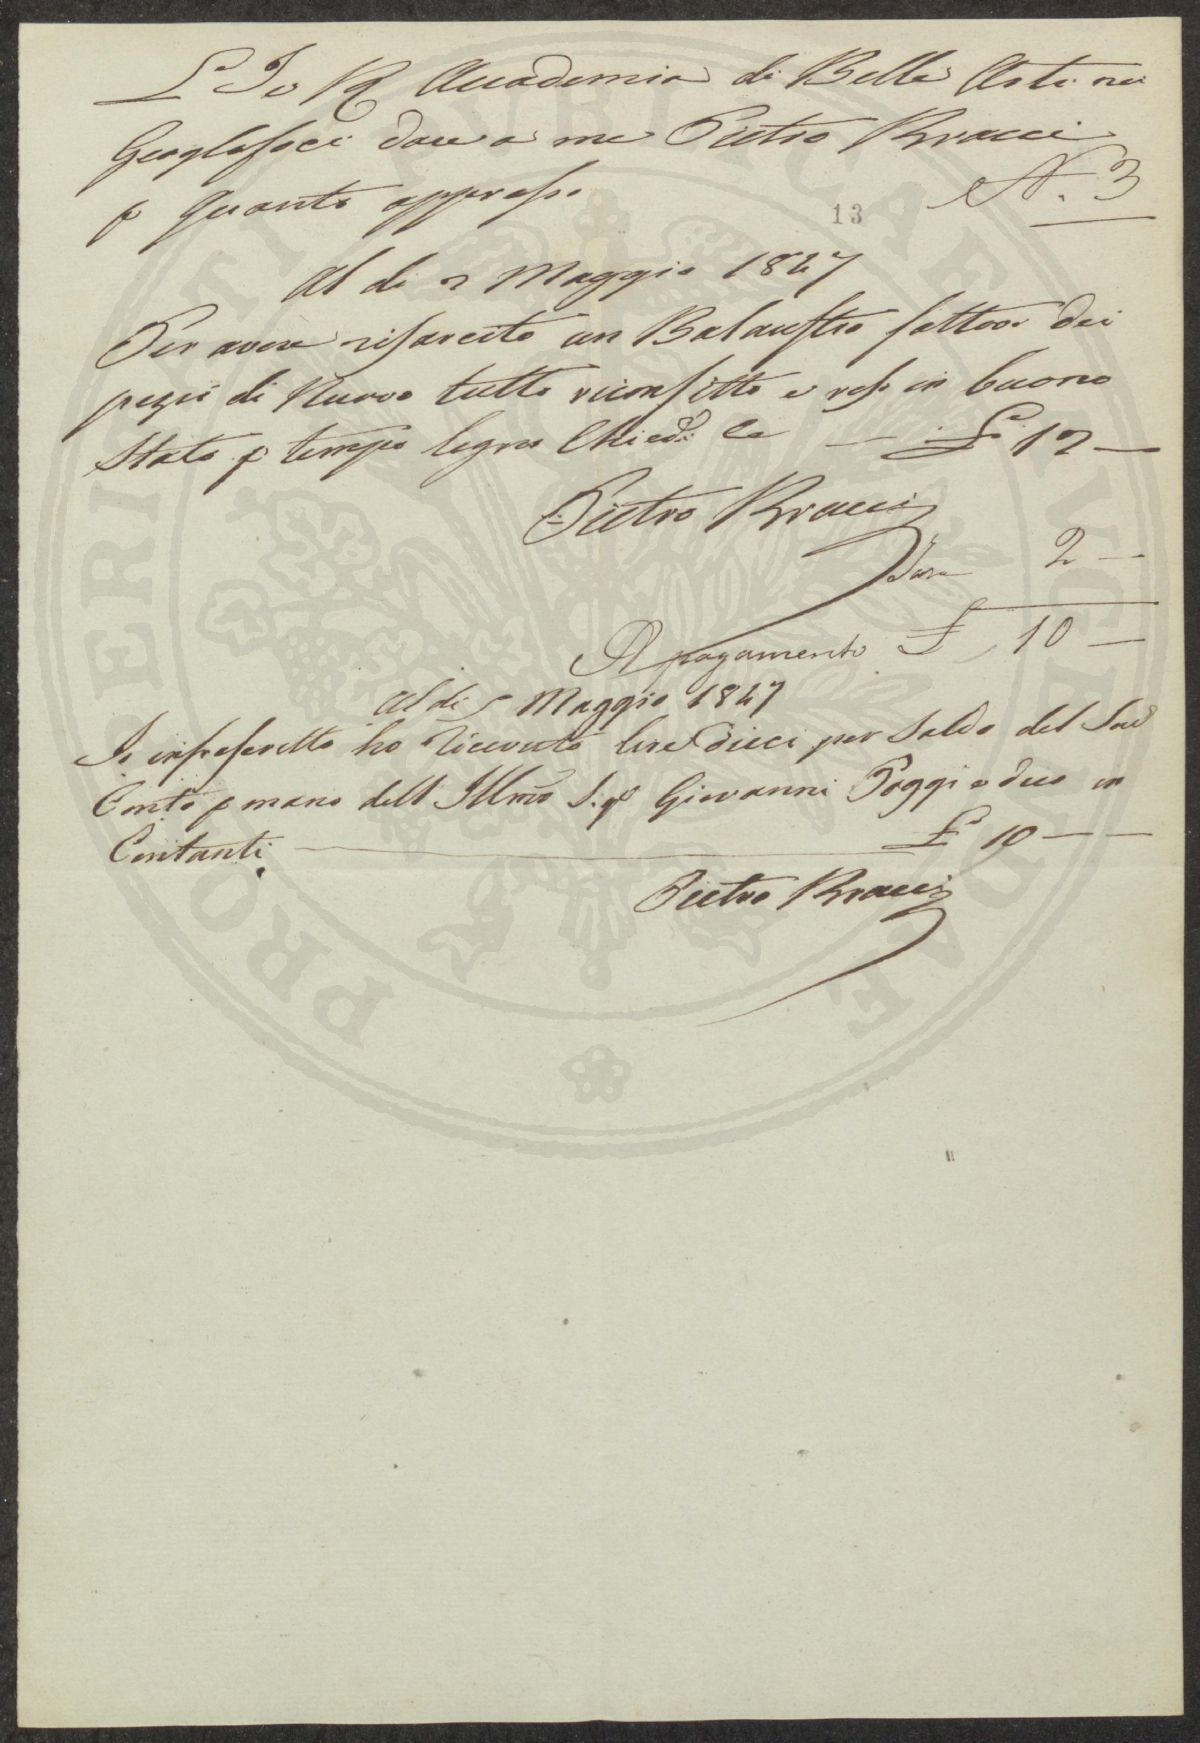 L I. e R. Accademia di Belle Arti nei
Georgofoci dare a me Pietro Bracci
p quanto appresso
N. 3
13
Al di 2 Maggio 1847
Per avere risarcito un Balaustro fattovi dei
pezzi di Nuovo tutto riconfitto e reso in buono
Stato p tempo legno Chiodi &c — £ 12 —
Pietro Bracci
Tara 2 —
A pagamento £ 10 —
Al di 5 Maggio 1847
Io infrascritto ho Ricevuto lire dieci per Saldo del Sud
Conto p mano dell Illmo Sigr Giovanni Poggi e dico in
Contanti — £ 10 — —
Pietro Bracci
PROPRIETATI PVBLICAE